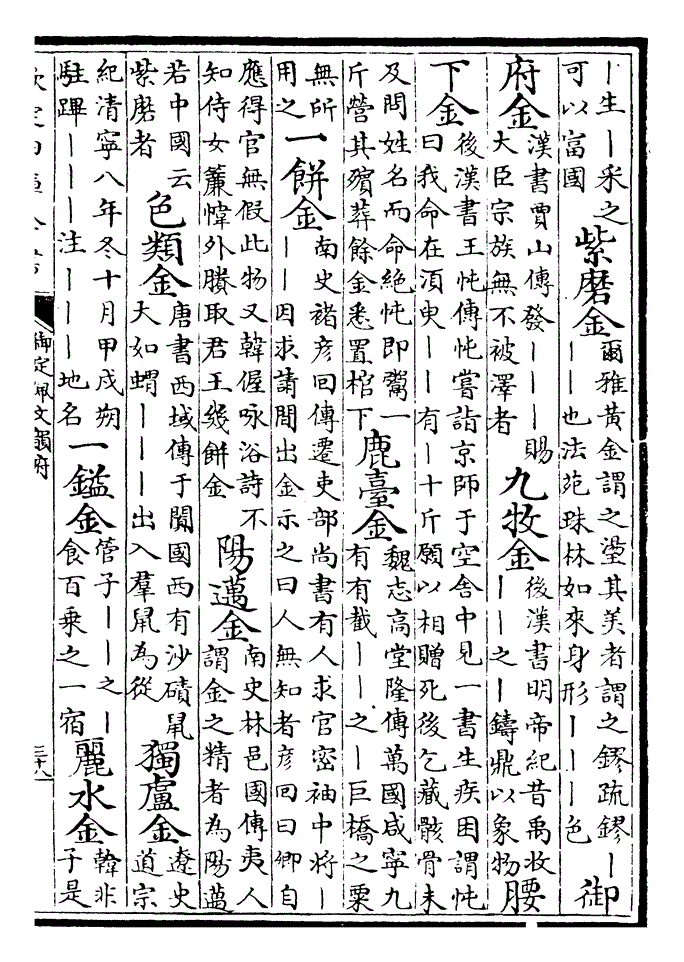 丨生丨采之
可以富國
紫磨金
爾雅黃金謂之璗其美者謂之鏐疏鏐丨
丨丨也法苑珠林如來身形丨丨丨色
御
府金
漢書賈山傳發丨丨丨賜
大臣宗族無不被澤者
九牧金
後漢書明帝紀昔禹收
丨丨之丨鑄鼎以象物
腰
下金
後漢書王忳傳忳嘗詣京師于空舍中見一書生疾困謂忳
曰我命在湏臾丨丨有丨十斤願以相贈死後乞藏骸骨未
及問姓名而命絕忳即鬻一
斤營其殯葬餘金悉置棺下
鹿臺金
魏志高堂隆傳萬國咸寧九
有有截丨丨之丨巨橋之粟
無所
用之
一餅金
南史褚彦回傳遷吏部尚書有人求官密袖中将丨
丨丨因求請間出金示之曰人無知者彦回曰卿自
應得官無假此物又韓偓咏浴詩不
知侍女簾幃外賸取君王幾餅金
陽邁金
南史林邑國傳夷人
謂金之精者為陽邁
若中國云
紫磨者
色類金
唐書西域傳于闐國西有沙磧鼠
大如蝟丨丨丨出入羣鼠為從
獨盧金
遼史
道宗
紀清寧八年冬十月甲戌朔
駐蹕丨丨丨注丨丨丨地名
一鎰金
管子丨丨之丨
食百乘之一宿
麗水金
韓非
子是
欽定四庫全書
御定佩文韻府
三十八